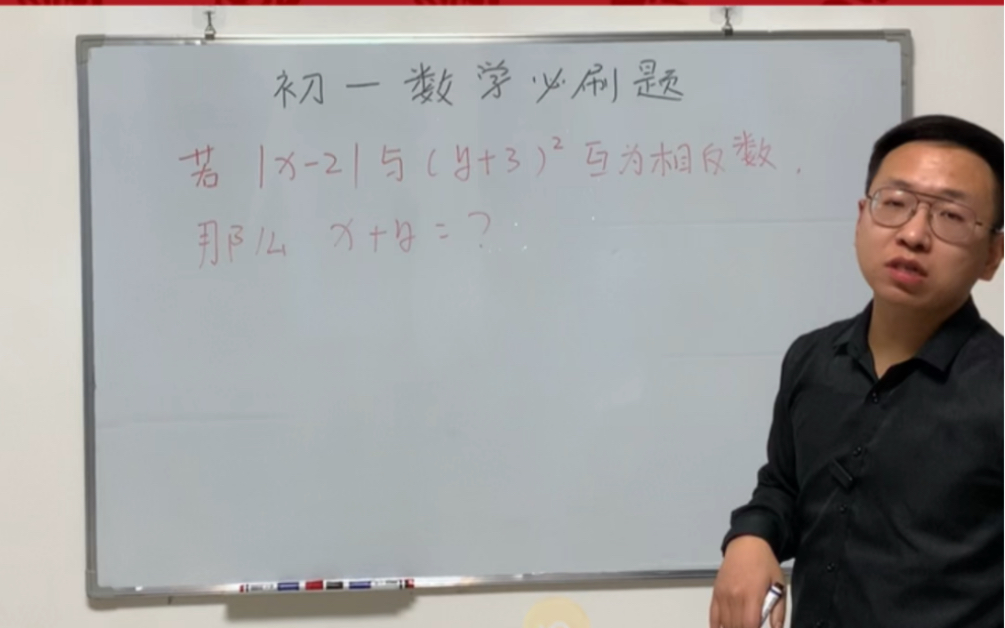 初一数学必刷题
若 |x-2| 与 (y+3)² 互为相反数.
那么 x+y=?